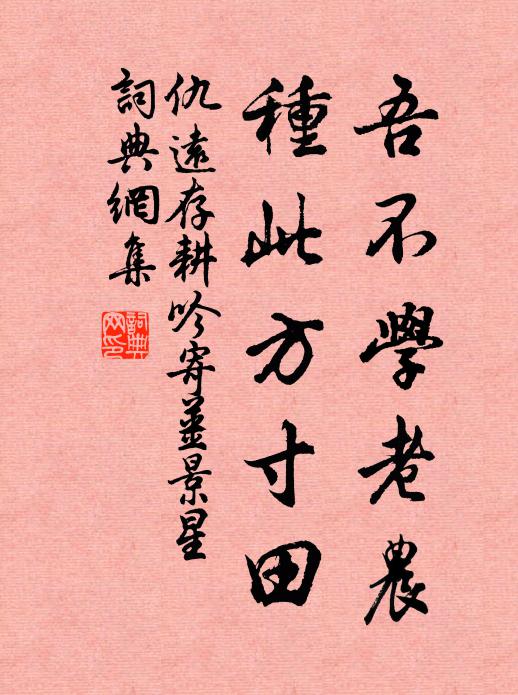 吾不學老農
種此方寸田
仇遠存耕吟寄薑景星
詞典網集
詞典
网印